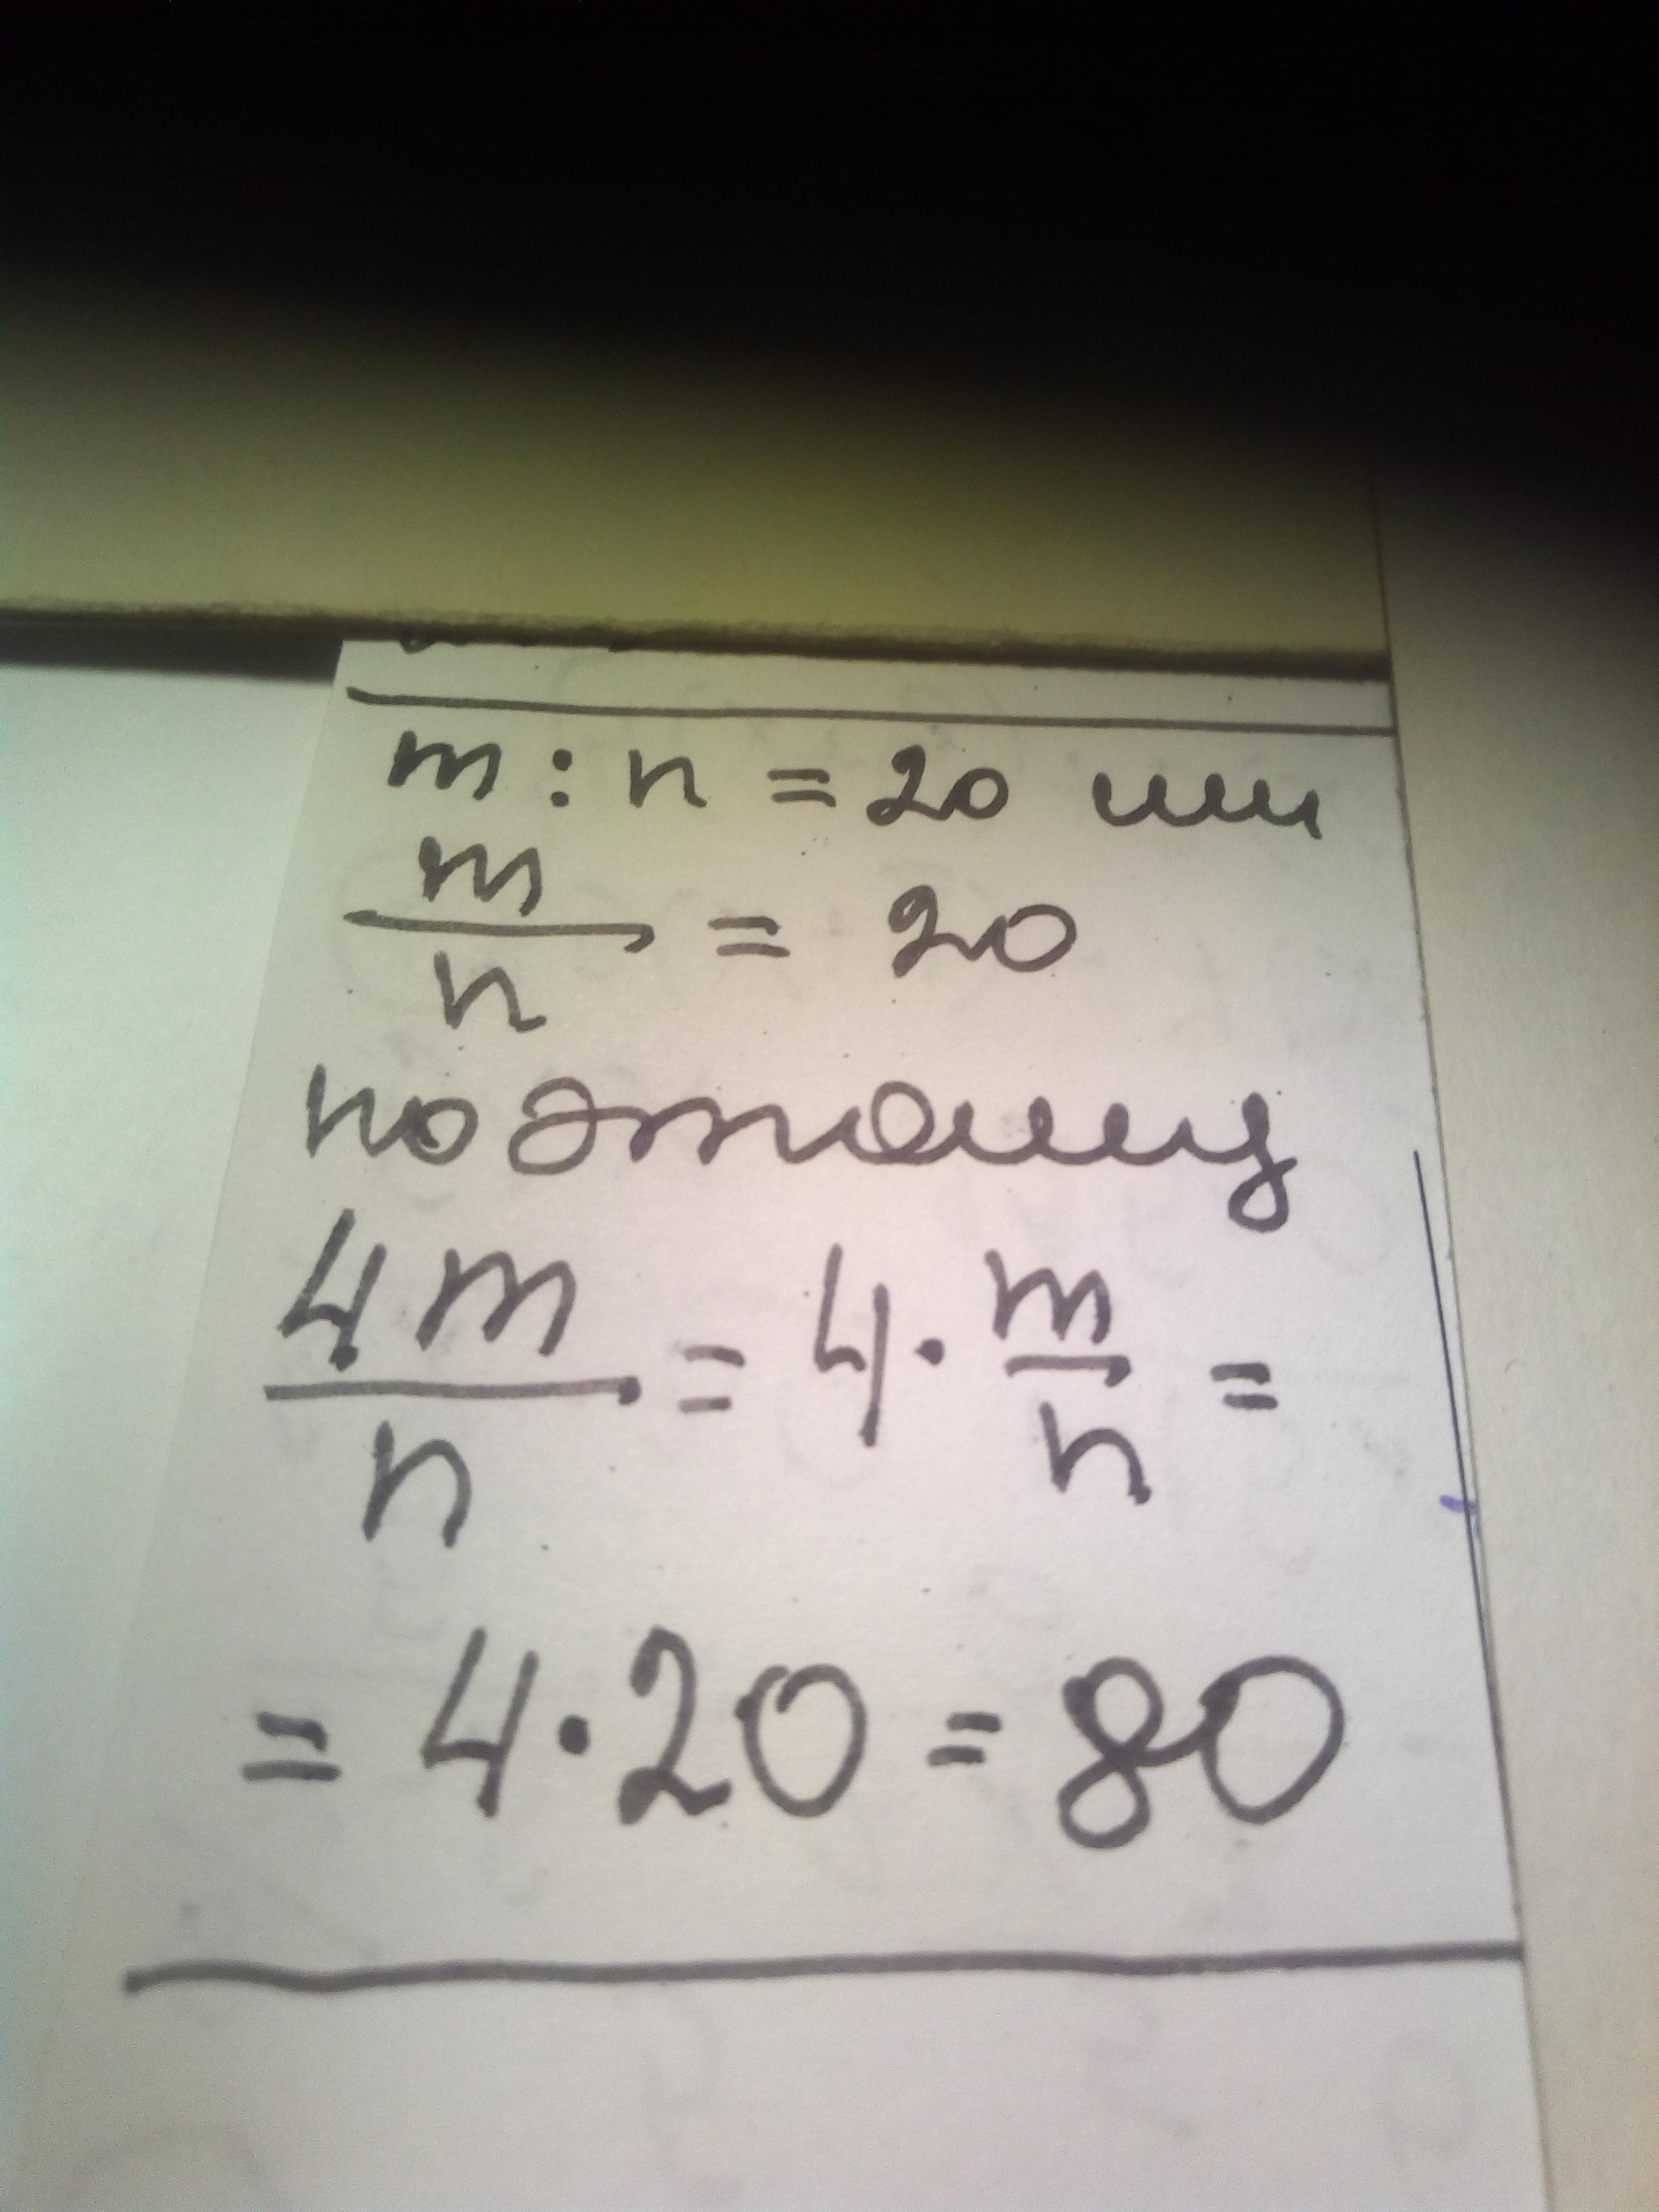 m : n = 20 или
m/n = 20
поэтому
4m/n = 4 · m/n =
= 4 · 20 = 80